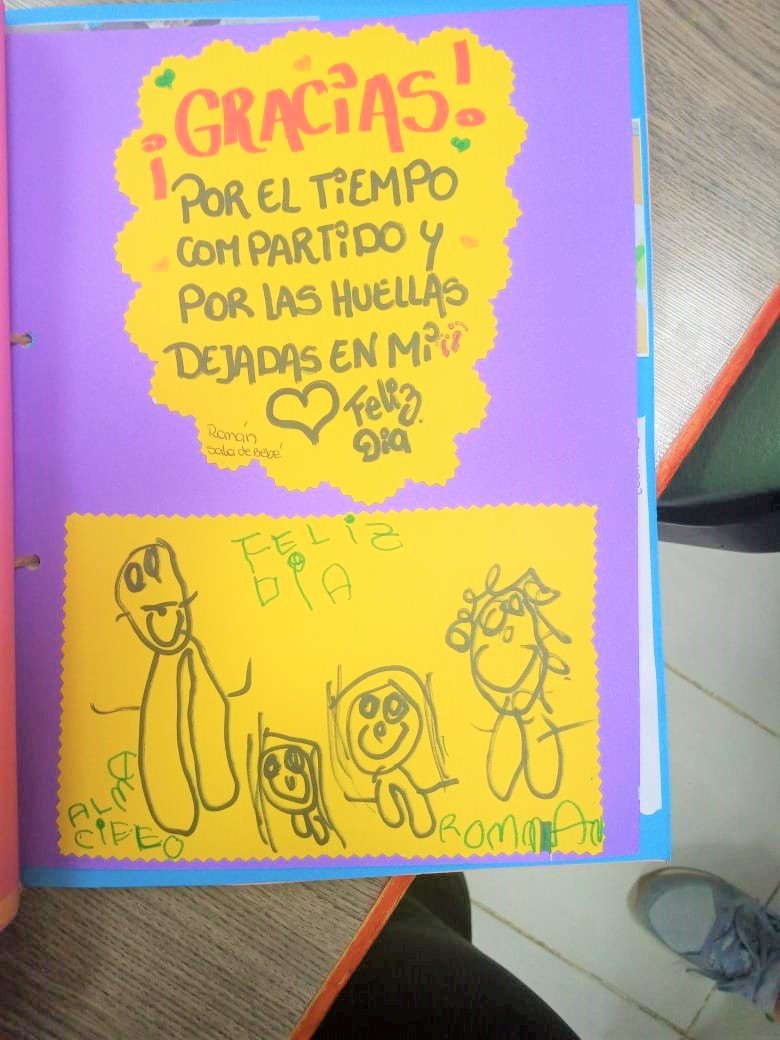 ¡GRACIAS!
POR EL TIEMPO
COMPARTIDO Y
POR LAS HUELLAS
DEJADAS EN Mi
Feliz
Dia
Román
Sala de Bebé
FELIZ
DiA
ALMA
CIELO
ROMMAN